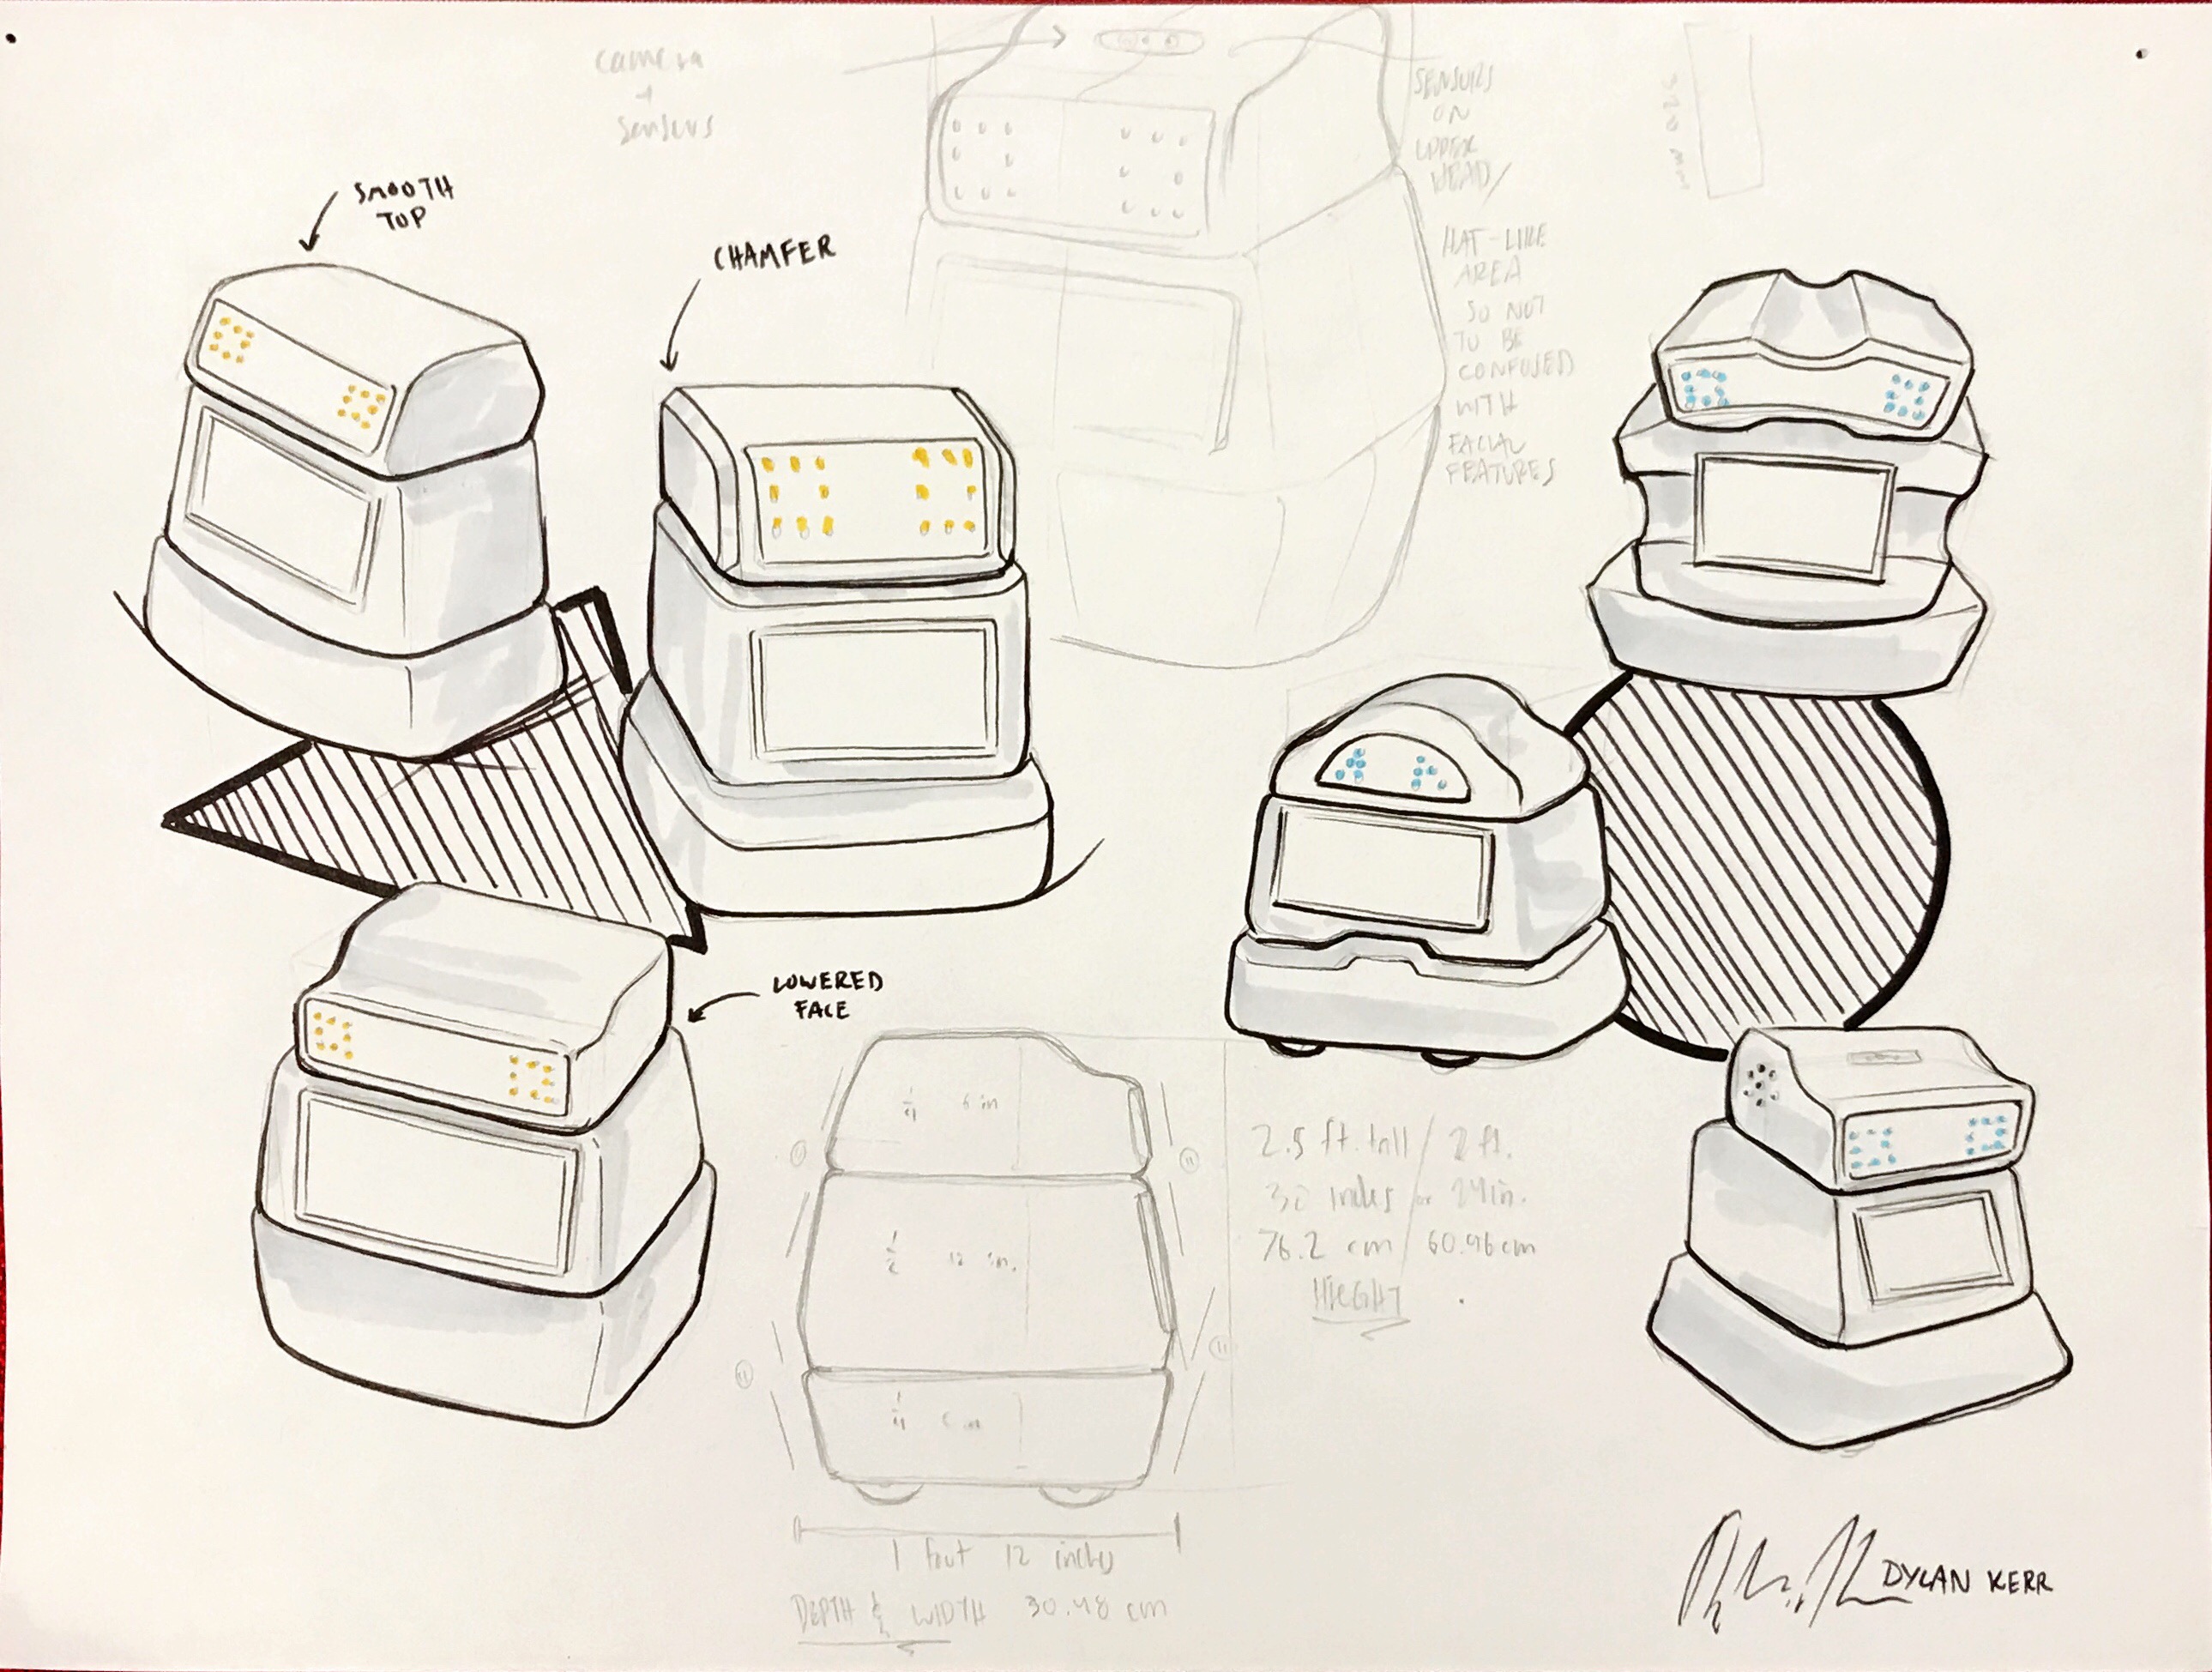 camera
+
sensors
SENSORS
ON
UPPER
HEAD/
HAT-LIKE
AREA
SO NOT
TO BE
CONFUSED
WITH
FACIAL
FEATURES
320 mm
SMOOTH
TOP
CHAMFER
LOWERED
FACE
1/4 6 in
1/2 12 in.
1/4 6 in
2.5 ft. tall / 2 ft.
30 inches or 24in.
76.2 cm / 60.96cm
HIEGHT
1 foot 12 inches
DEPTH & WIDTH 30.48 cm
DYLAN KERR